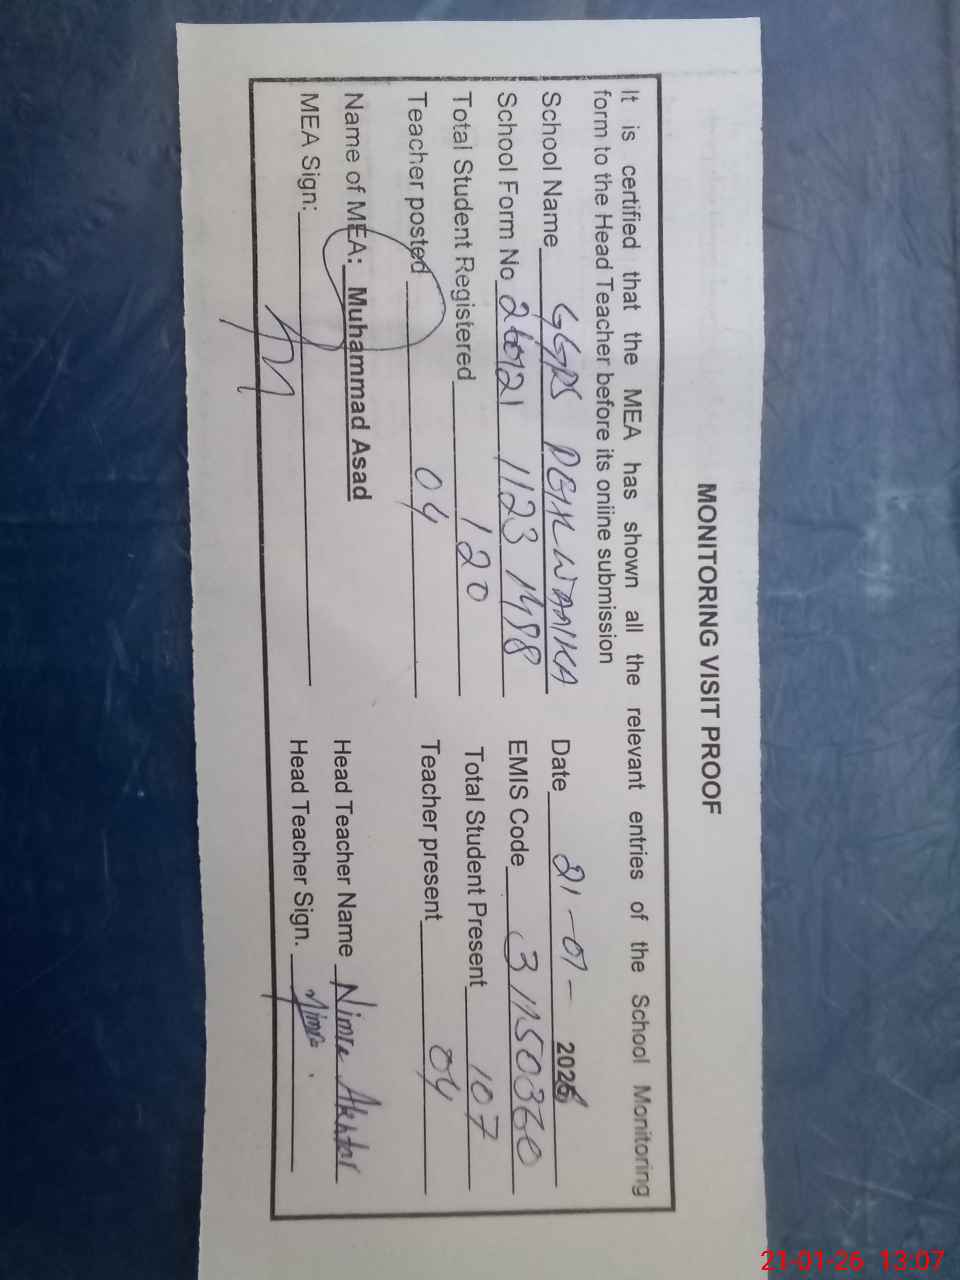 MONITORING VISIT PROOF
It is certified that the MEA has shown all the relevant entries of the School Monitoring
form to the Head Teacher before its online submission
School Name Date 21-01-2026
School Form No 260121 1123 1498 EMIS Code 31150360
Total Student Registered 120 Total Student Present 107
Teacher posted 04 Teacher present 04
Name of MEA: Muhammad Asad Head Teacher Name Nimra Akhtar
MEA Sign: Head Teacher Sign. Nimra
21-01-26 13:07